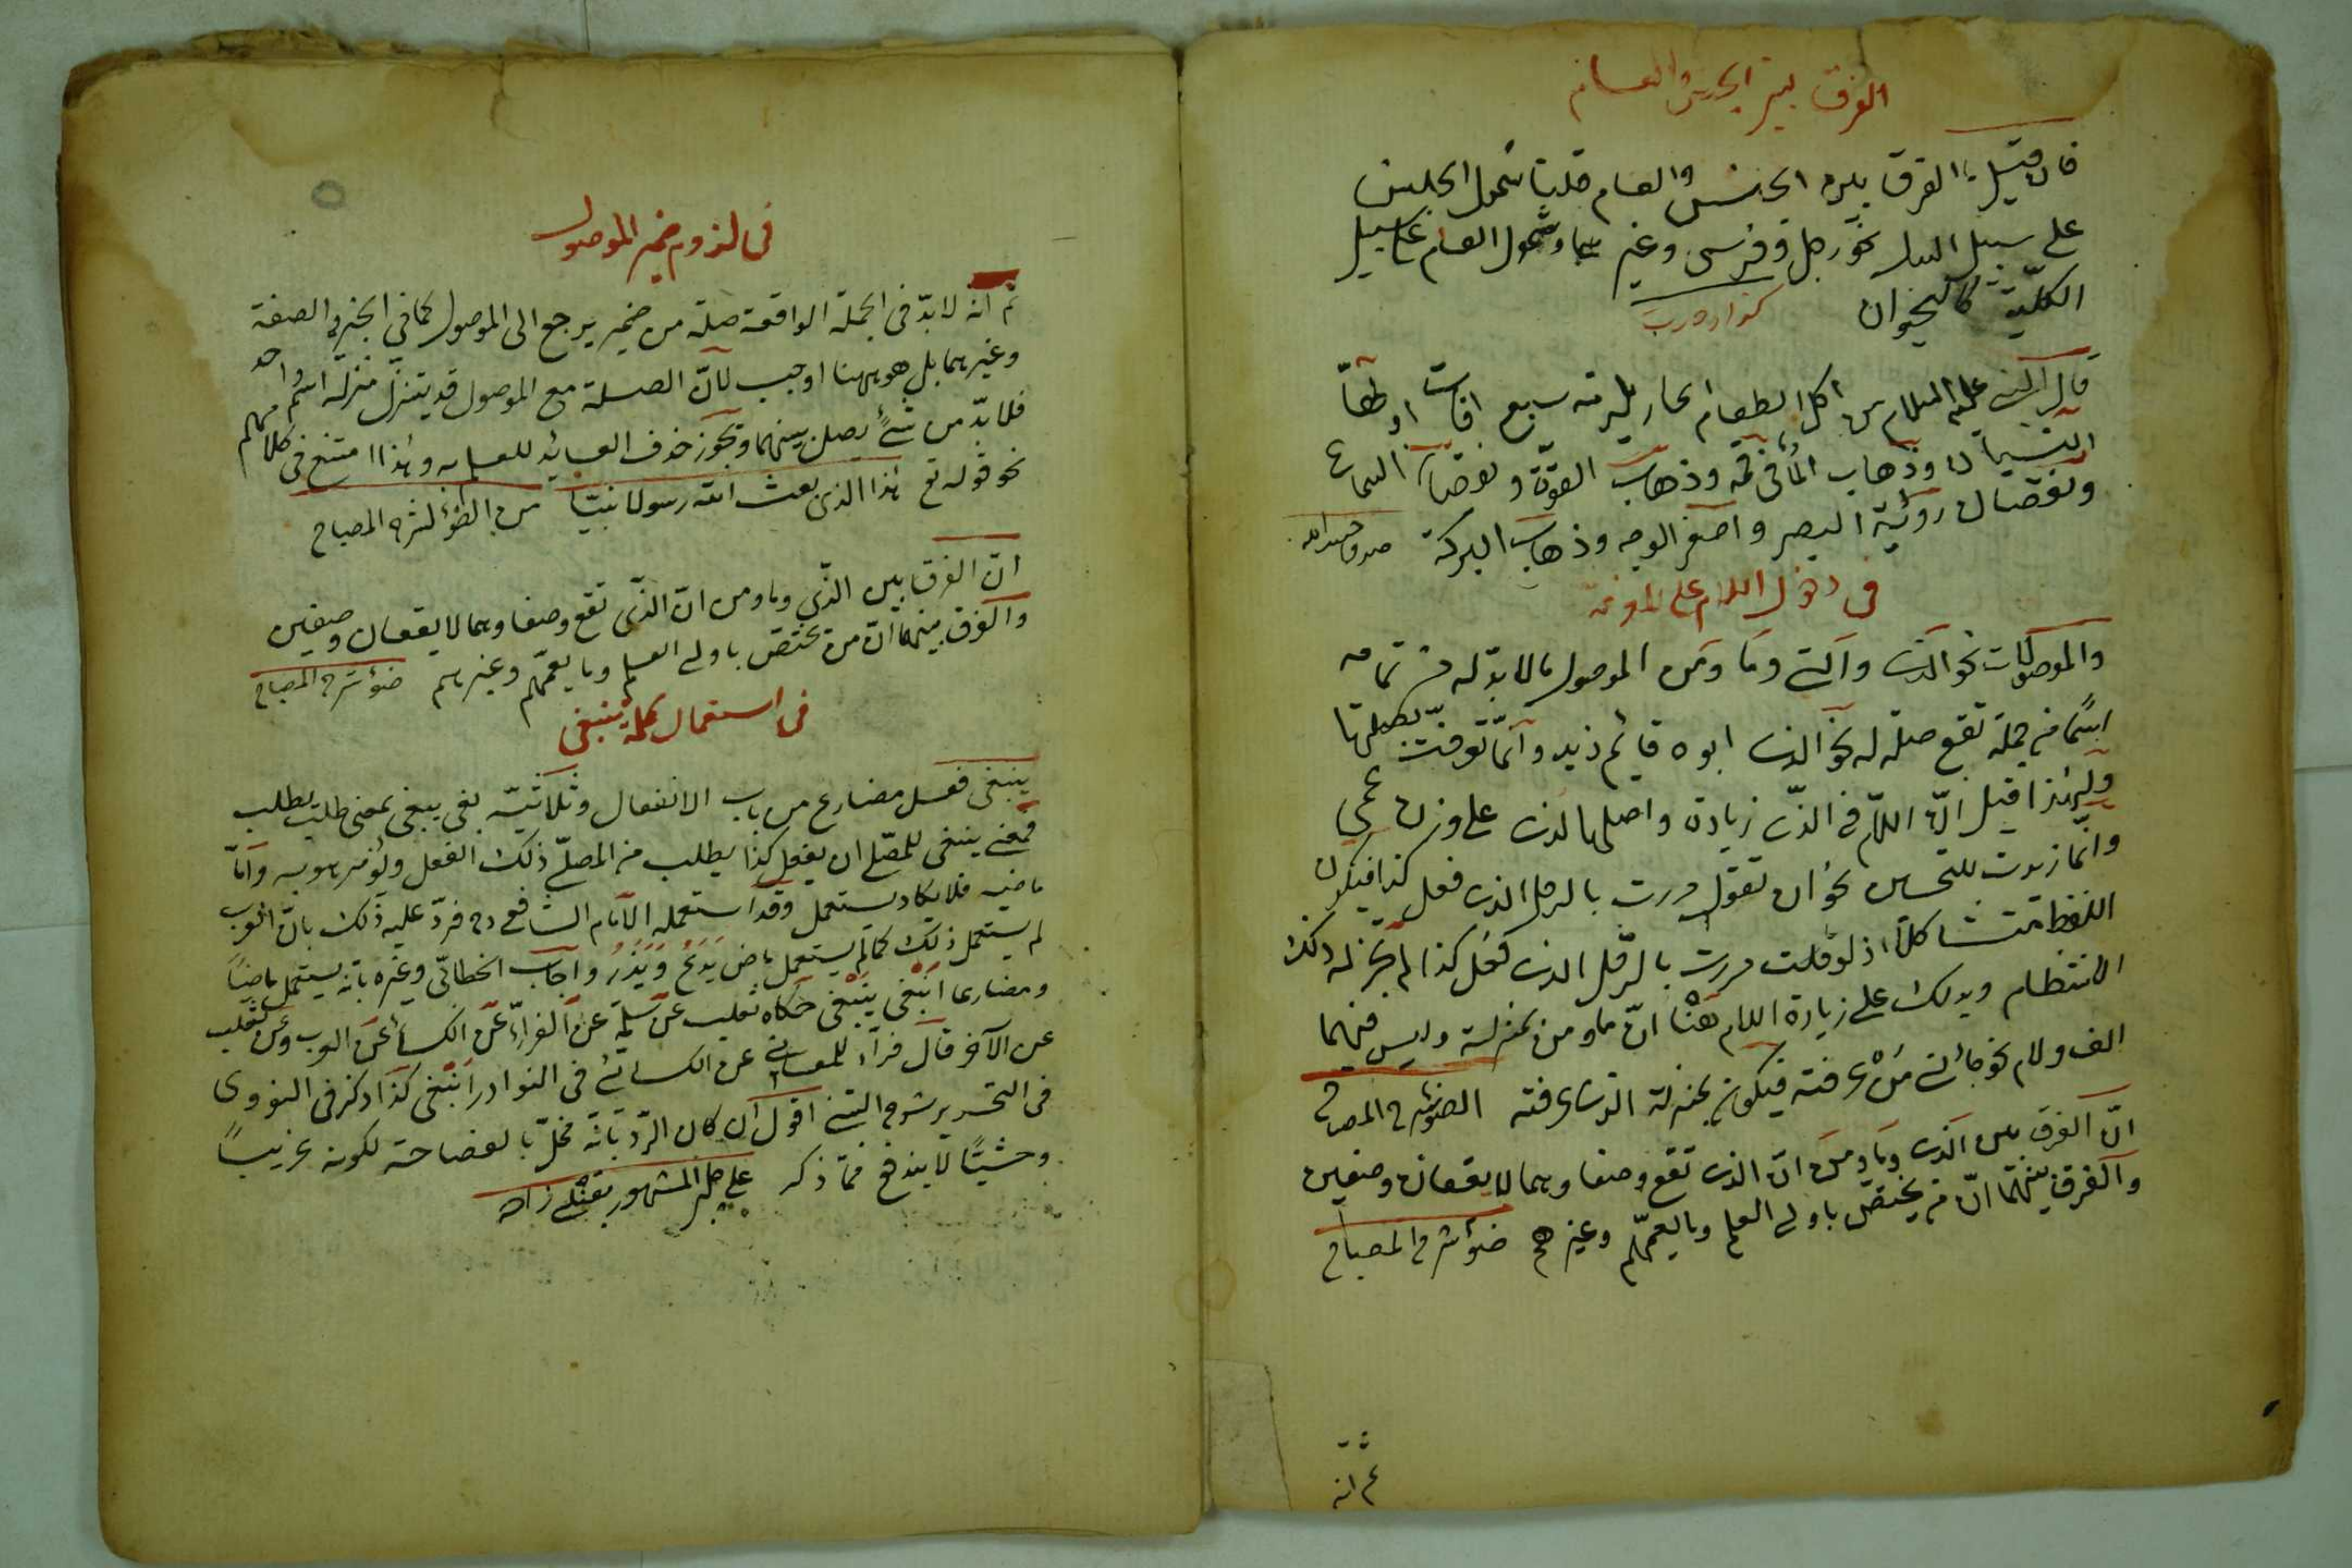 الفرق بين الجنس والعام
فان قيل ما الفرق بين الجنس والعام قلنا شمول الجنس
على سبيل البدل نحو رجل وفرس وغيرهما وشمول العام على سبيل
الكليّة كالحيوان
قال النبى عليه السلام من اكل الطعام الحار يلزمه سبع افات اولها
النسيان وذهاب الماء فى فمه وذهاب القوّة ونقصان السماع
ونقصان رؤية البصر واصفر الوجه وذهاب البركة
فى دخول اللام على المعرفة
والموصولات نحو الذى والتى وما ومن الموصول ما لابدّ له فى تمامه
اسمًا من جملة تقع صلة له نحو الذى ابوه قائم زيد وانّما تعرفت بصلتها
ولهذا قيل انّ اللام فى الذى زيادة واصلها لذى على وزن عمى
وانّما زيدت للتحسين نحو ان تقول مررت بالرجل الذى فعل كذا فيكون
اللفظ متشاكلاً اذ لو قلت مررت بالرّجل لذى فعل كذا لم يجز له ذلك
الانتظام ويدلك على زيادة اللام هنا انّ ما ومن بمنزلته وليس فيهما
الف ولام نحو جائنى من عرفته فيكون بمنزلة الذى عرفته الضوء شرح المصباح
انّ الفرق بين الذى وما ومن انّ الذى تقع وصفا وهما لا يقعان وصفين
والفرق بينهما انّ من يختص باولى العلم وما يعمّهم وغيرهم ضوء شرح المصباح
ثم انه
فى لزوم ضمير الموصول
ثم انه لابدّ فى الجملة الواقعة صلة من ضمير يرجع الى الموصول كما فى الخبر والصفة
وغيرهما بل هو ههنا اوجب لانّ الصلة مع الموصول قد يتنزل منزلة اسم واحد
فلا بدّ من شئ يصل بينهما ويجوز حذف العائد للعلم به وهذا امتنع فى كلامهم
نحو قوله تع هذا الذى بعث الله رسولا نبيّا من الضوء لشرح المصباح
انّ الفرق بين الذى وما ومن انّ الذى تقع وصفا وهما لا يقعان وصفين
والفرق بينهما انّ من يختص باولى العلم وما يعمّهم وغيرهم ضوء شرح المصباح
فى استعمال كلمة ينبغى
ينبغى فعل مضارع من باب الانفعال وثلاثيّه بغى يبغى بمعنى طلب يطلب
فمعنى ينبغى للمصلّى ان يفعل كذا يطلب من المصلّى ذلك الفعل ويؤمر هو به وامّا
ماضيه فلا يكاد يستعمل وقد استعمله الامام الشافعى رح فردّ عليه ذلك بانّ العرب
لم يستعمل ذلك كما لم يستعمل ماض يَدَعُ وَيَذَرُ واجاب الخطابىّ وغيره بانّه يستعمل ماضيًا
ومضارعا انبغى ينبغى حكاه ثعلب عن سلمة عن الفرّاء عن الكسائى عن العرب وعن ثعلب
عن الآخر قال قرأ للمعانى عن الكسائى فى النوادر انبغى كذا ذكر فى النووى
فى التحرير شرح التنبيه اقول ان كان الردّ بانّه مخلّ بالفصاحة لكونه غريبًا
وحشيًّا لا يندفع بما ذكر